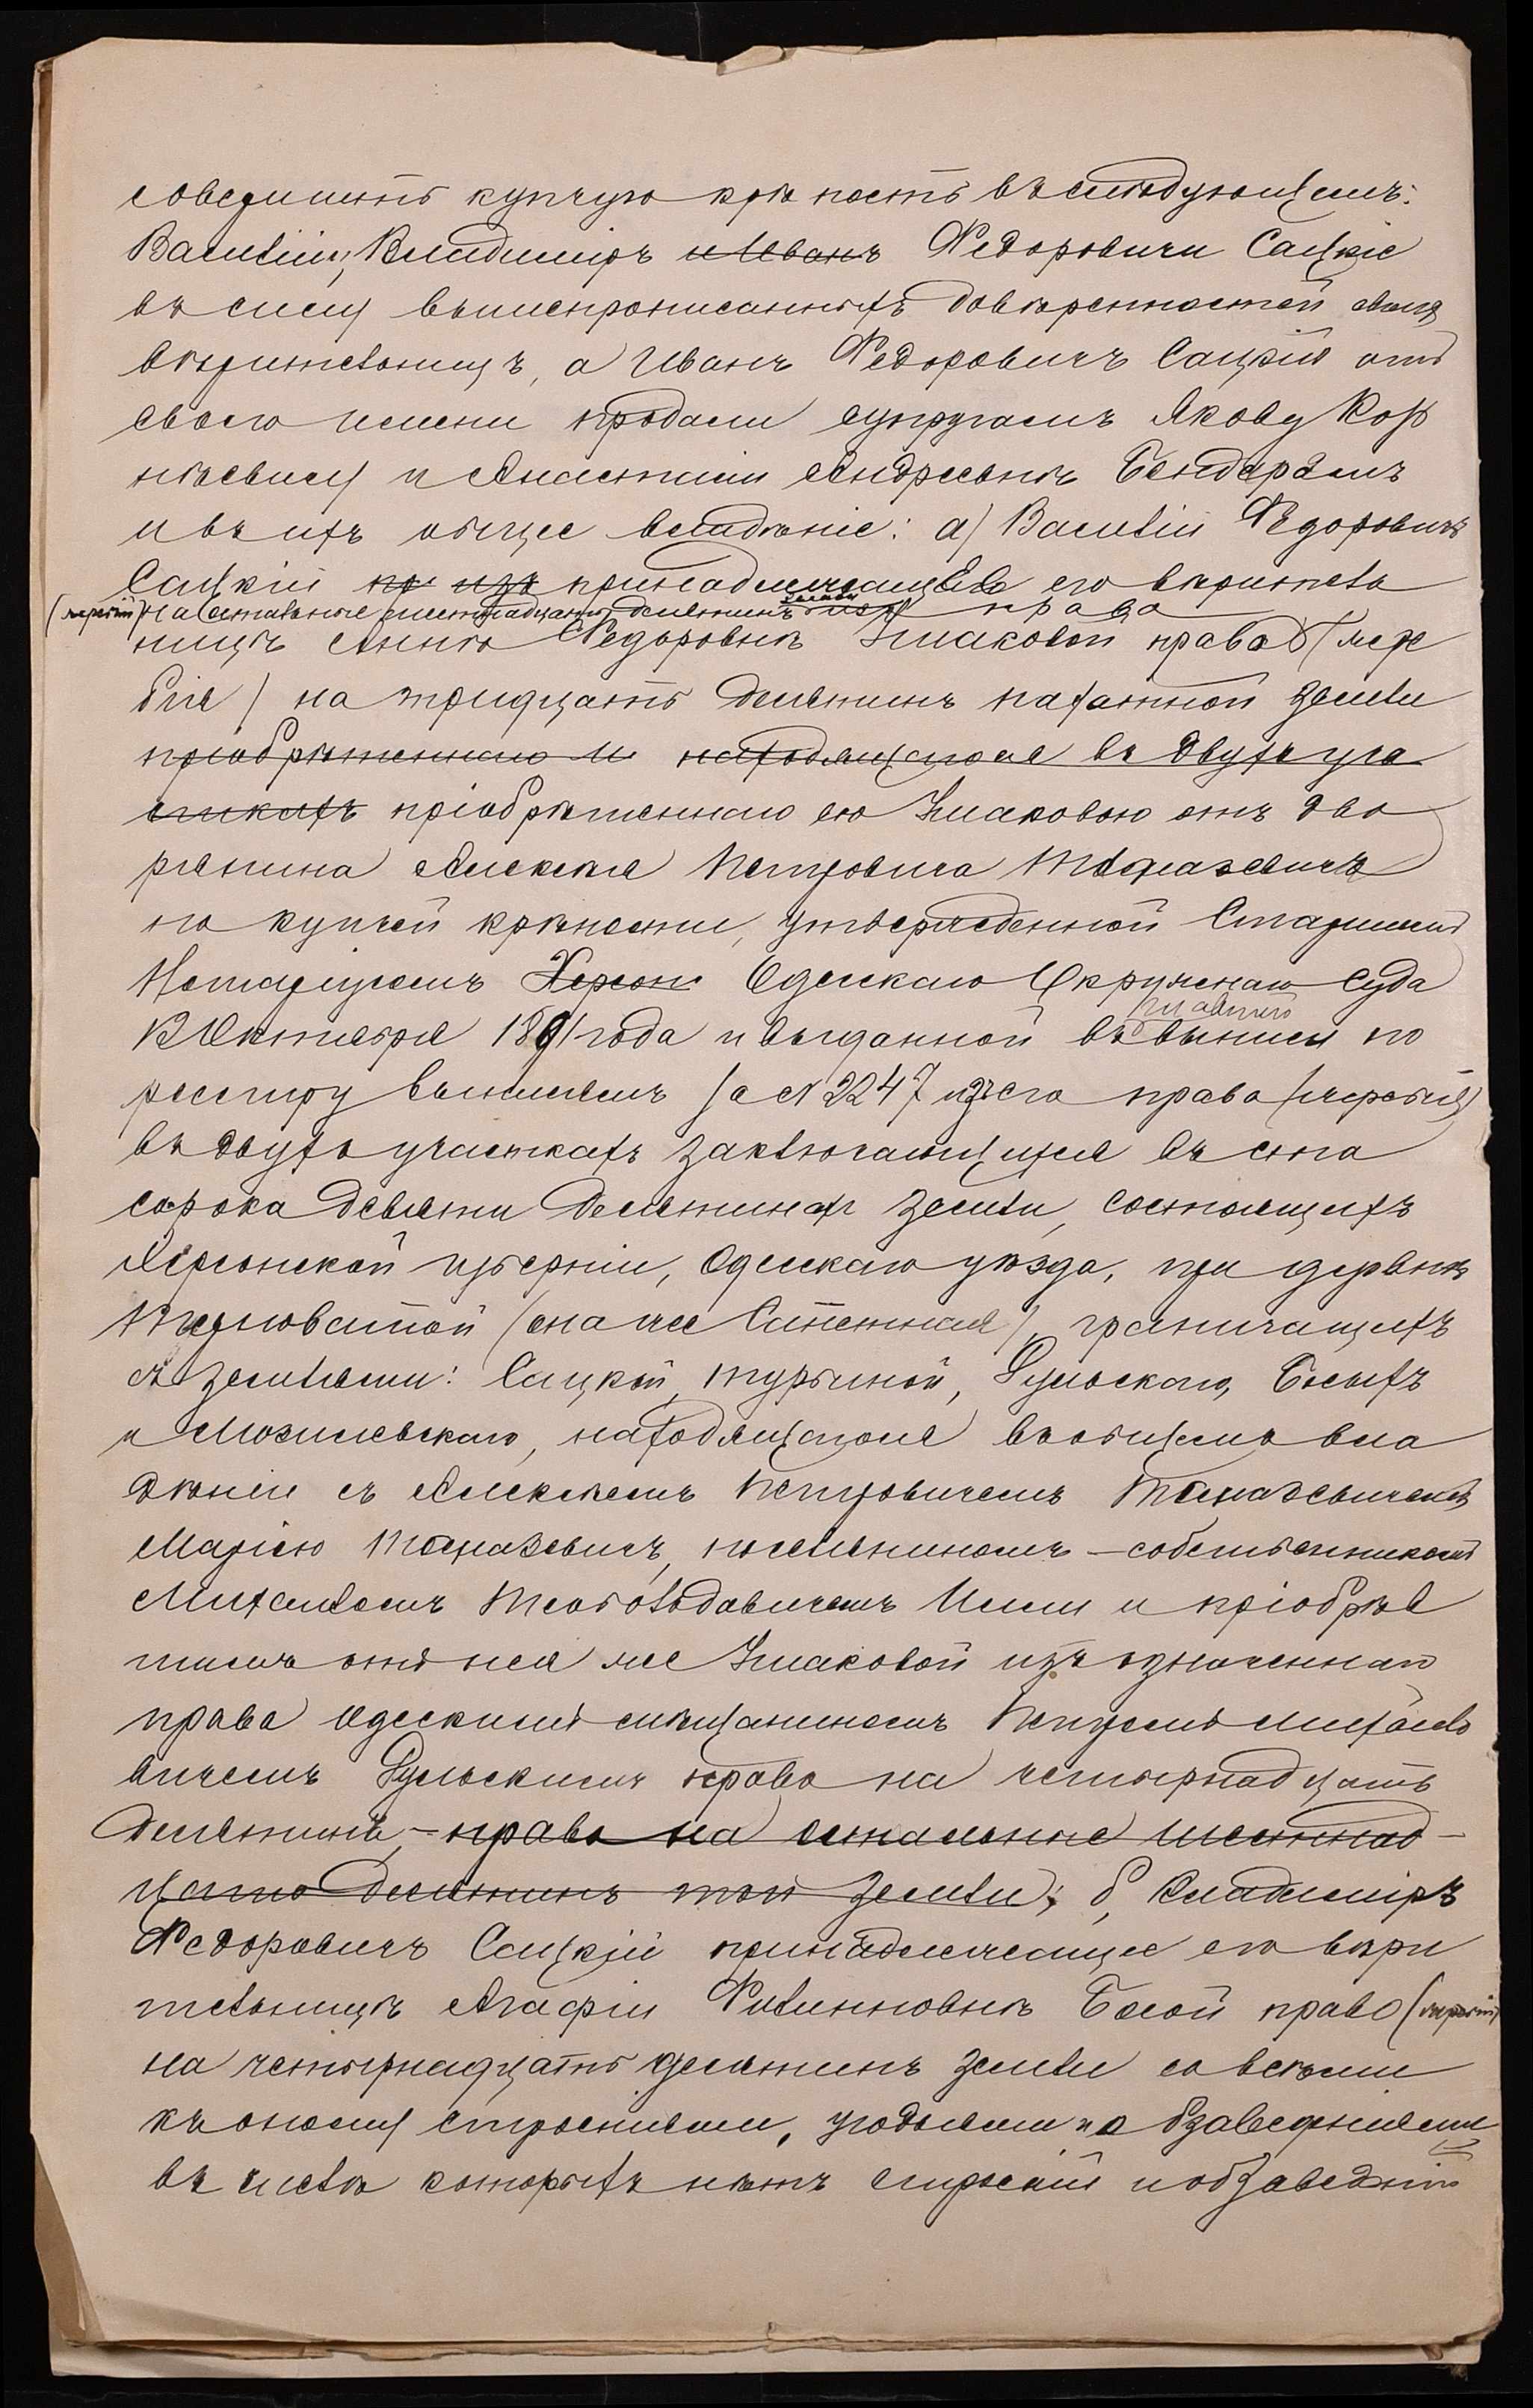 совершить купчую крѣпость въ слѣдующемъ:
Василій, Владиміръ и Иванъ Федоровичи Сацкіе
въ силу вышепрописанныхъ довѣренностей своихъ
вѣрительницъ, а Иванъ Федоровичъ Сацкій отъ
своего имени продали супругамъ Якову Кор
нѣевичу и Анастасіи Андреевнѣ Бондарямъ
и въ ихъ общее владѣніе: а) Василій Федоровичъ
Сацкій изъ принадлежащаго его вѣритель
(жеребій) на остальные шестнадцать десятинъ земли права
ницѣ Аннѣ Федоровнѣ Ушаковой права (жере
бія) на тридцать десятинъ пахатной земли
пріобрѣтеннаго и находящагося въ двухъ уча
сткахъ пріобрѣтеннаго ею Ушаковою отъ дво
рянина Алексѣя Петровича
по купчей крѣпости, утвержденной Старшимъ
Нотаріусомъ Херсон Одесскаго Окружнаго Суда
12 Октября 1891 года и выданной въ выписи по
реестру за № 2247 изъ его права (жеребія)
въ двухъ участкахъ заключающихся въ ста
сорока девяти десятинахъ земли, состоящихъ
Херсонской губерніи, Одесскаго уѣзда, при деревнѣ
Терноватой (она же Степная), граничащихъ
съ землями: Сацкой, Турьиной, Гульскаго, Бѣлыхъ
и Могилевскаго, находящагося въ общемъ вла
дѣніи съ Алексѣемъ Петровичемъ
Маріею поселяниномъ – собственникомъ
Михаиломъ и пріобрѣ
тшимъ отъ нея же Ушаковой изъ означеннаго
права Одесскимъ мѣщаниномъ Петромъ Михайло
вичемъ Гульскимъ право на четырнадцать
десятинъ, – право на остальные шестнад
цать десятинъ той земли; б, Владиміръ
Федоровичъ Сацкій принадлежащее его вѣри
тельницѣ Агафіи Филипповнѣ Бѣлой право (жеребій)
на четырнадцать десятинъ земли со всѣми
къ оному строеніями, угодьями и обзаведеніями
въ числѣ которыхъ нѣтъ строеній и обзаведеній